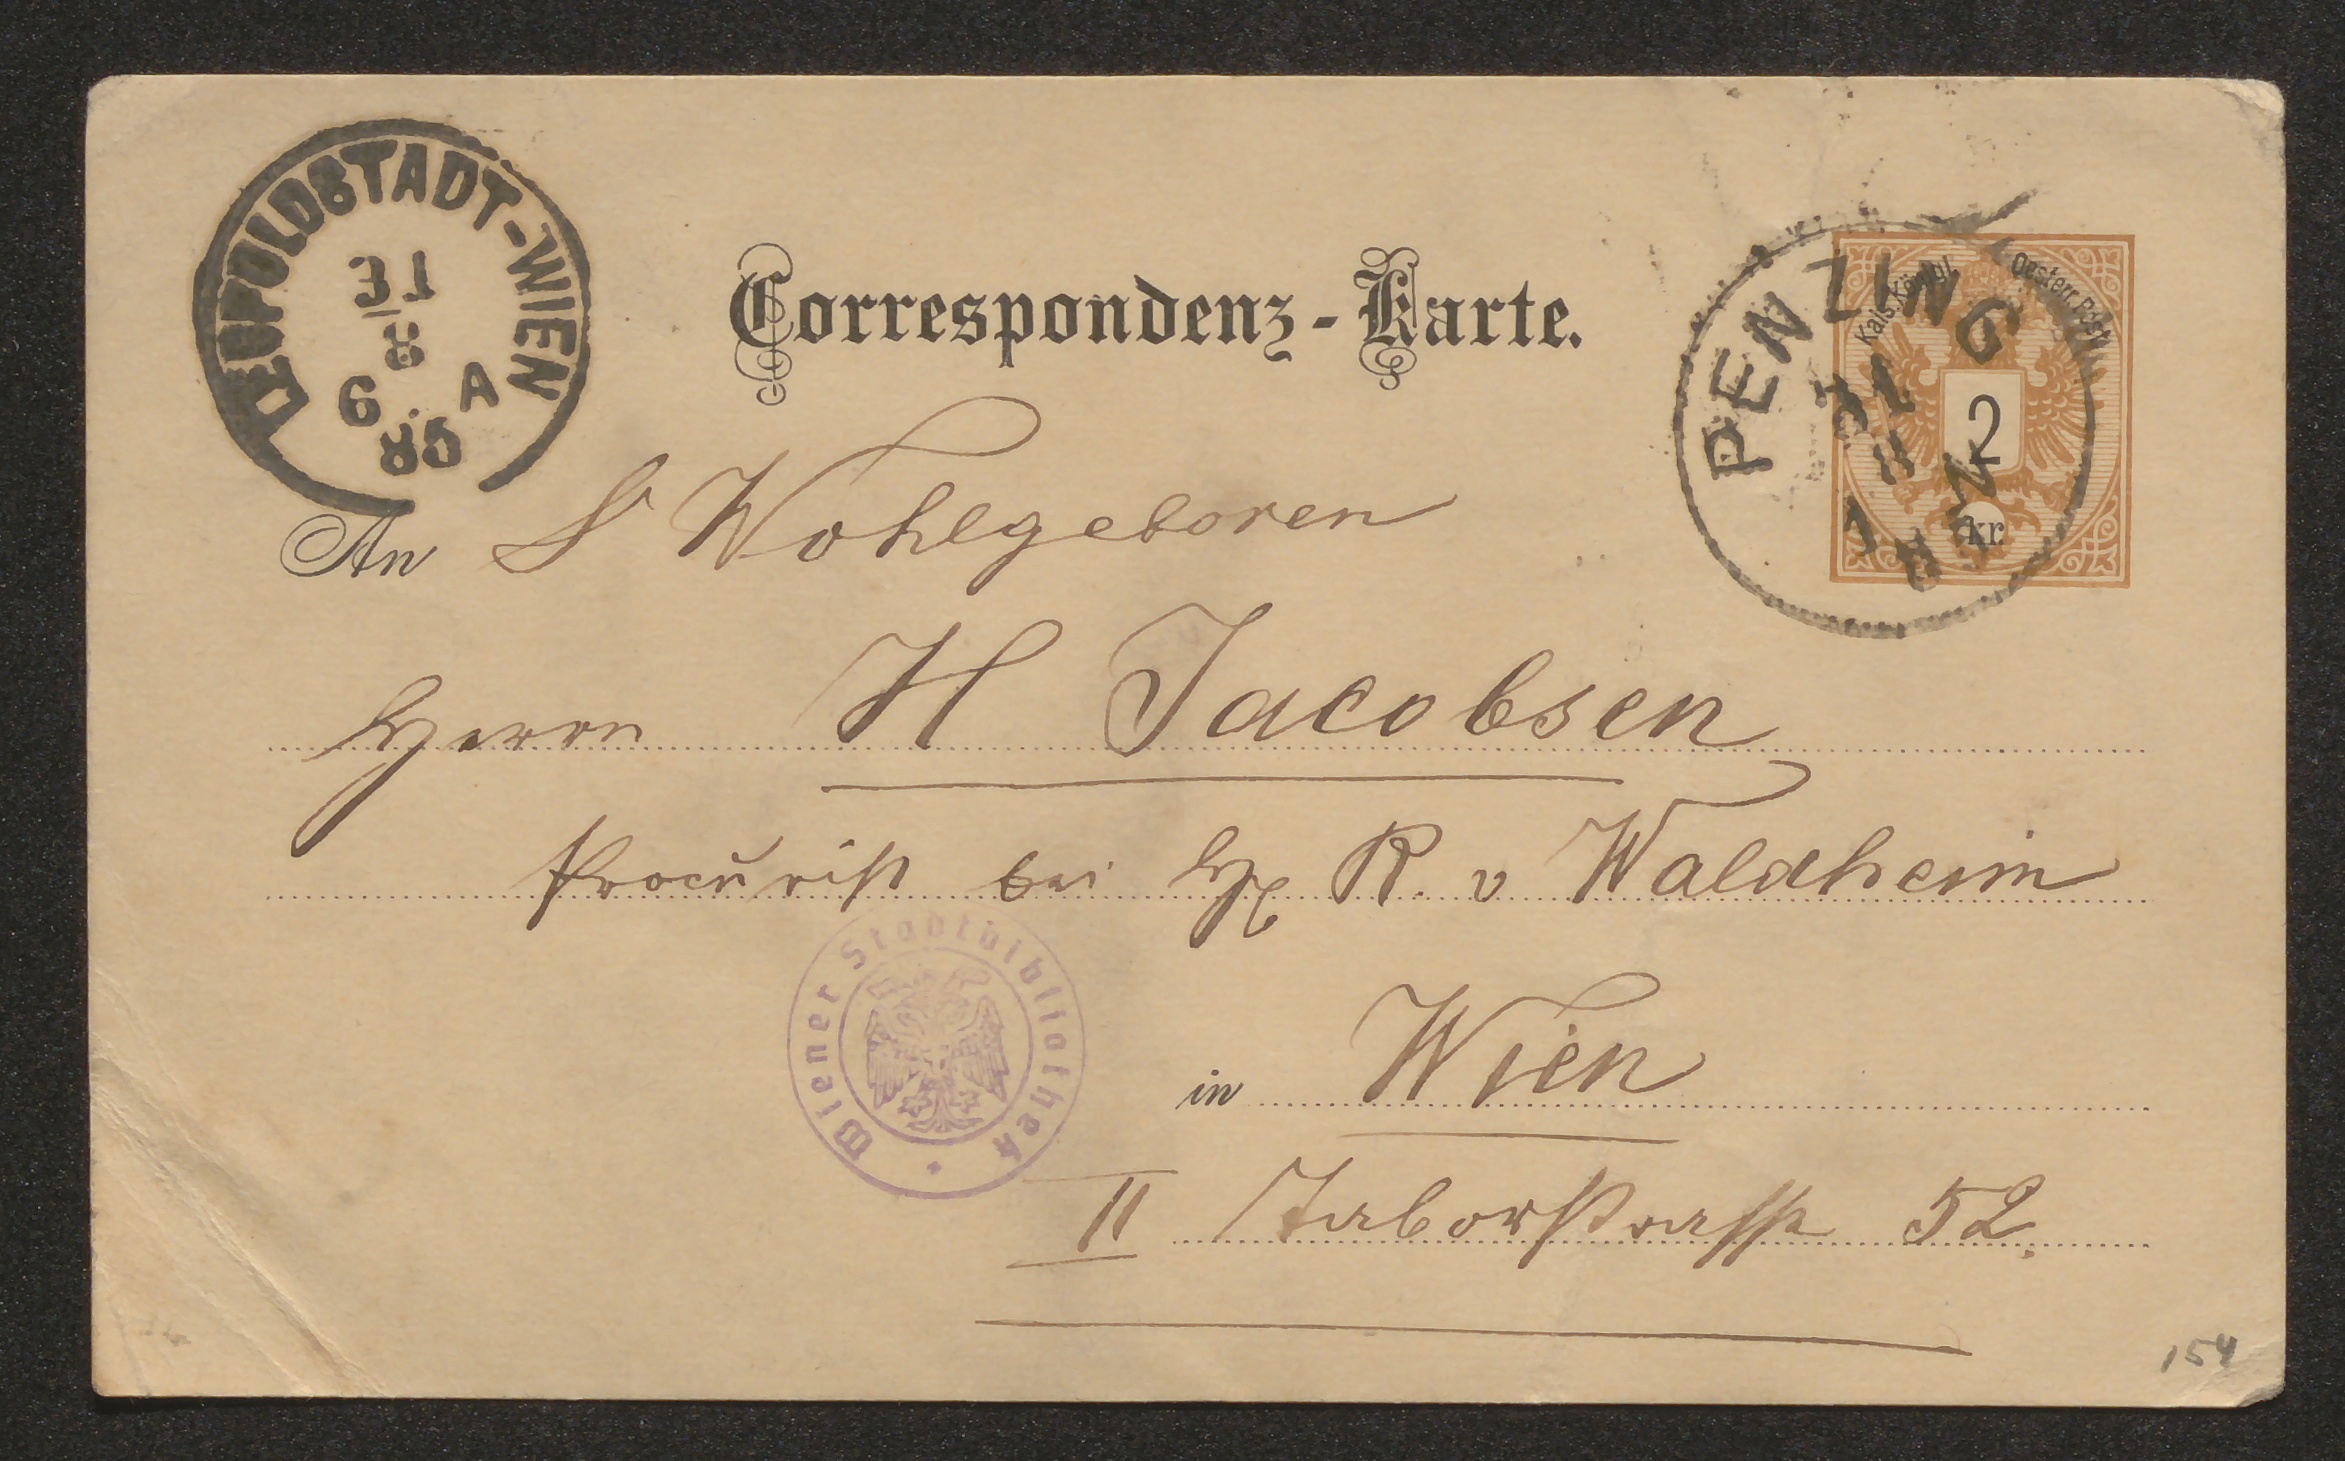 LEOPOLDSTADT-WIEN
31
8
6 A
85
Correspondenz-Karte.
PENZING
31
8
Kais. Königl. oesterr. Post
2
kr.
An S Wohlgeboren
Herrn H Jacobsen
Procurist bei H R. v Waldheim
Wiener Stadtbibliothek
in Wien
II Taborstrasse 52.
154